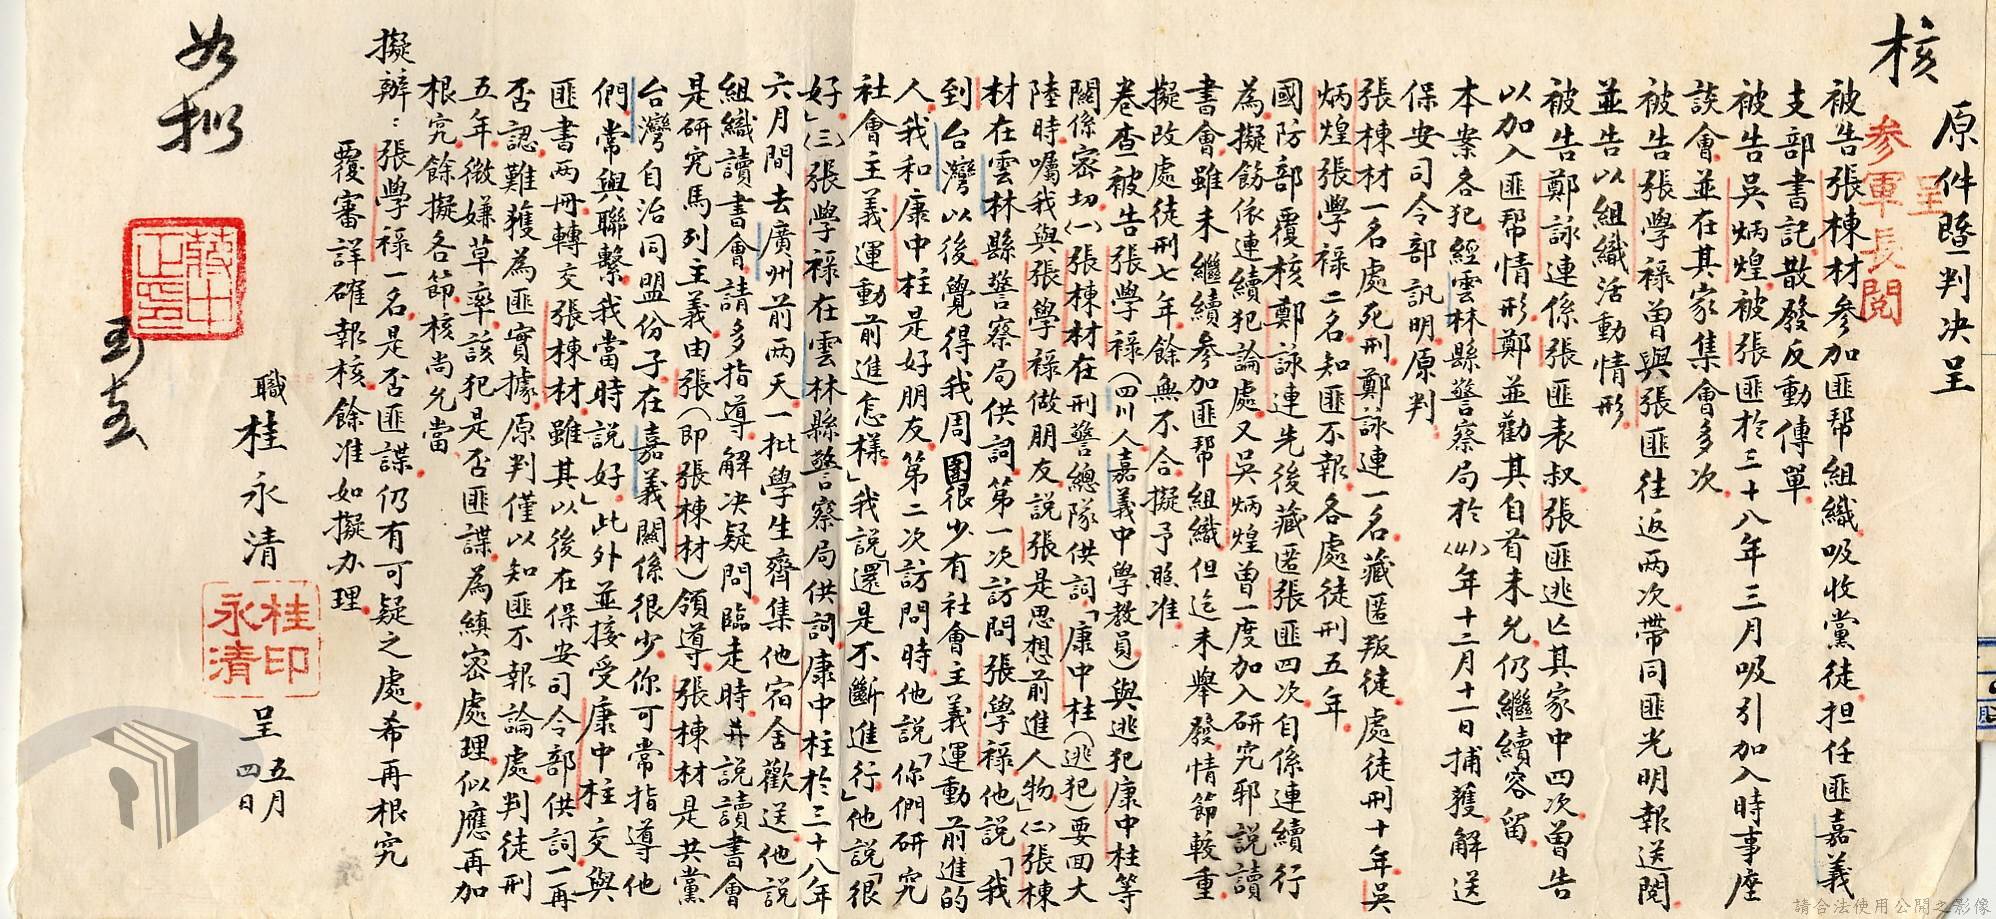 核
原件暨判決呈
呈
參軍長閱
被告張棟材參加匪幫組織吸收黨徒担任匪嘉義
支部書記散發反動傳單
被告吳炳煌被張匪於三十八年三月吸引加入時事座
談會並在其家集會多次
被告張學祿曾與張匪往返两次帶同匪光明報送閱
並告以組織活動情形
被告鄭詠連係張匪表叔張匪逃亡其家中四次曾告
以加入匪幫情形鄭並勸其自首未允仍繼續容留
本案各犯經雲林縣警察局於(41)年十二月十一日捕獲解送
保安司令部訊明原判
張棟材一名處死刑鄭詠連一名藏匿叛徒處徒刑十年吳
炳煌張學祿二名知匪不報各處徒刑五年
國防部覆核鄭詠連先後藏匿張匪四次自係連續行
為擬飭依連續犯論處又吳炳煌曾一度加入研究邪說讀
書會雖未繼續參加匪幫組織但迄未舉發情節較重
擬改處徒刑七年餘無不合擬予照准
卷查被告張學祿(四川人嘉義中學教員)與逃犯康中柱等
關係密切(一)張棟材在刑警總隊供詞「康中柱(逃犯)要回大
陸時囑我與張學祿做朋友說張是思想前進人物」(二)張棟
材在雲林縣警察局供詞第一次訪問張學祿他說「我
到台灣以後覺得我周圍很少有社會主義運動前進的
人我和康中柱是好朋友第二次訪問時他說「你們研究
社會主義運動前進怎樣」我說「還是不斷進行」他說「很
好」(三)張學祿在雲林縣警察局供詞康中柱於三十八年
六月間去廣州前两天一批學生齊集他宿舍歡送他說
組織讀書會請多指導解决疑問臨走時并說讀書會
是研究馬列主義由張(即張棟材)領導張棟材是共黨
台灣自治同盟份子在嘉義關係很少你可常指導他
們常與聯繫我當時說好」此外並接受康中柱交與
匪書两冊轉交張棟材雖其以後在保安司令部供詞一再
否認難獲為匪實據原判僅以知匪不報論處判徒刑
五年微嫌草率該犯是否匪諜為縝密處理似應再加
根究餘擬各節核尚允當
擬辦：張學祿一名是否匪諜仍有可疑之處希再根究
覆審詳確報核餘准如擬办理
職桂永清呈
五月
四日
桂永清印
如擬
蔣中正印